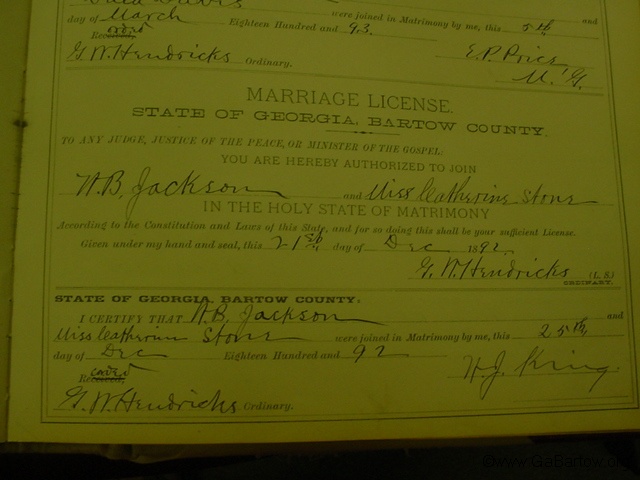 were joined in Matrimony by me, this 5th and
day of March Eighteen Hundred and 93.
G. W. Hendricks Ordinary.
E. P. Price
M. G.
MARRIAGE LICENSE.
STATE OF GEORGIA, BARTOW COUNTY.
TO ANY JUDGE, JUSTICE OF THE PEACE, OR MINISTER OF THE GOSPEL:
YOU ARE HEREBY AUTHORIZED TO JOIN
W. B. Jackson and Miss Catherine Stone
IN THE HOLY STATE OF MATRIMONY
According to the Constitution and Laws of this State, and for so doing this shall be your sufficient License.
Given under my hand and seal, this 21st day of Dec 1892.
G. W. Hendricks (L. S.)
ORDINARY.
STATE OF GEORGIA, BARTOW COUNTY:
I CERTIFY THAT W. B. Jackson and
Miss Catherine Stone were joined in Matrimony by me, this 25th,
day of Dec Eighteen Hundred and 92
W. J. King
G. W. Hendricks Ordinary.
©www.GaBartow.org